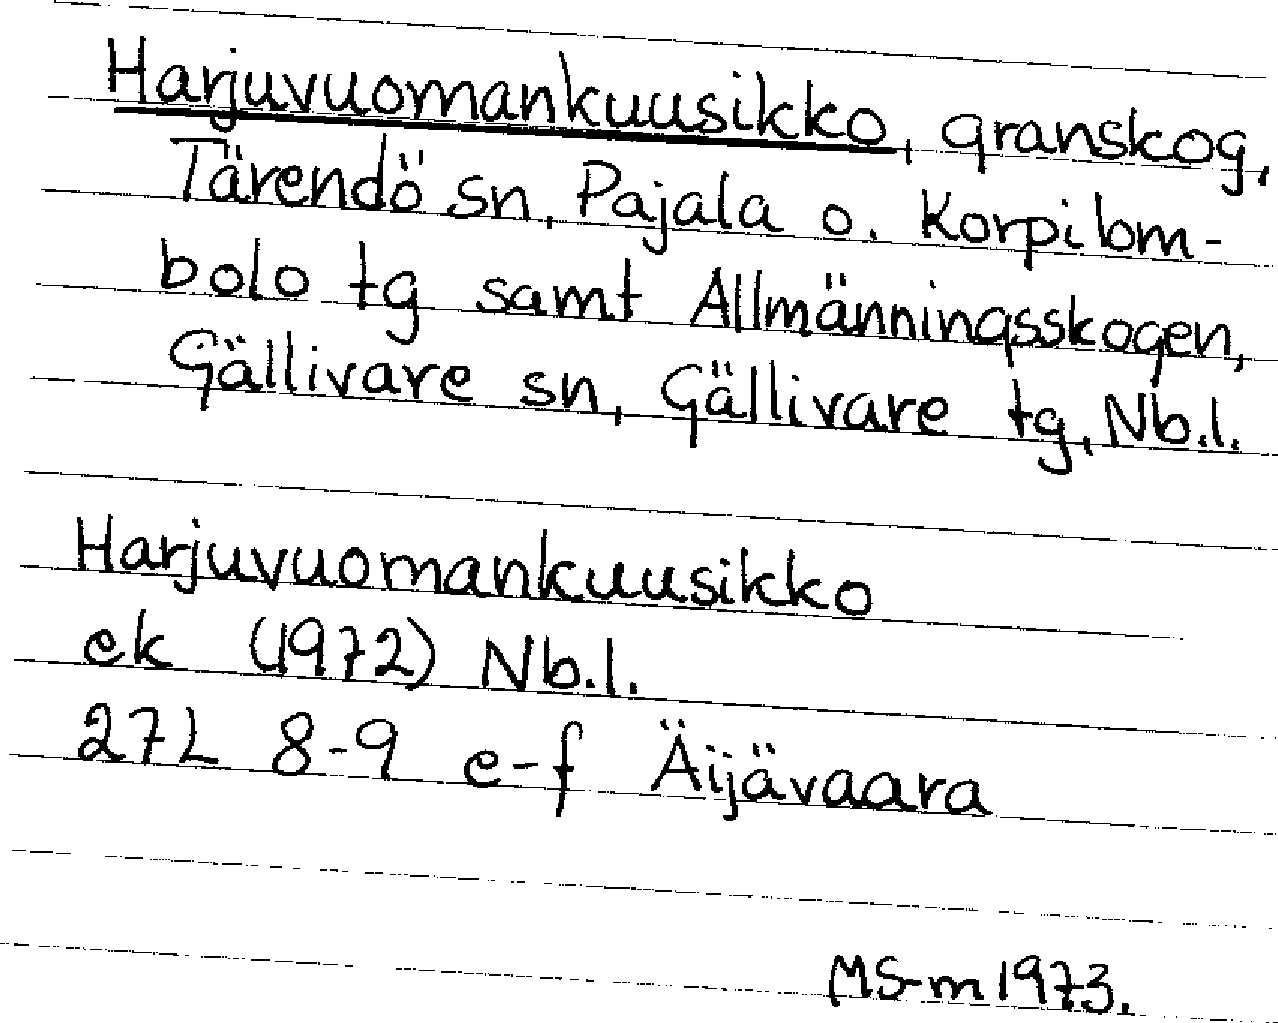 Harjuvuomankuusikko, granskog,
Tärendö sn, Pajala o. Korpilom-
bolo tg samt Allmänningsskogen,
Gällivare sn, Gällivare tg, Nb.l.
Harjuvuomankuusikko
ek (1972) Nb.l.
27L 8-9 e-f Äijävaara
MS-m 1973.